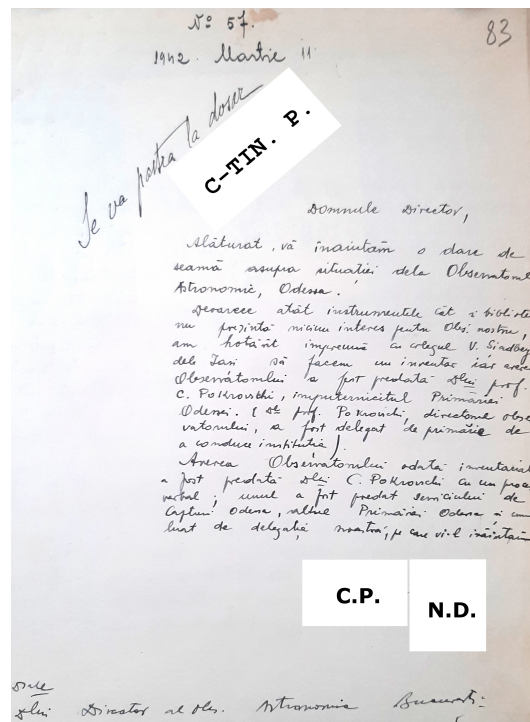 No 57.
83
1942 Martie 11
Se va păstra la dosar
C-TIN. P.
Domnule Director,
Alăturat, vă înaintăm o dare de
seamă asupra situației dela Observatorul
Astronomic, Odessa.
Deoarece atât instrumentele cât și bibliote
nu prezintă niciun interes pentru Obs. nostru,
am hotărît împreună cu colegul V.
dela Iași să facem un inventar iar averea
Observatorului a fost predată Dlui prof.
C. Pokrovschi, împuternicitul Primăriei
Odesei. (Dl prof. Pokrovschi, directorul obser
vatorului, a fost delegat de primărie de
a conduce instituția)
Averea Observatorului odată inventariată
a fost predată Dlui C. Pokrovschi cu un proces
verbal; unul a fost predat serviciului de
Capturi Odesa, altul Primăriei Odesa și unul
luat de delegația noastră, pe care vi-l înaintăm
C.P.
N.D.
Dsale
Dlui Director al Obs. Astronomic București